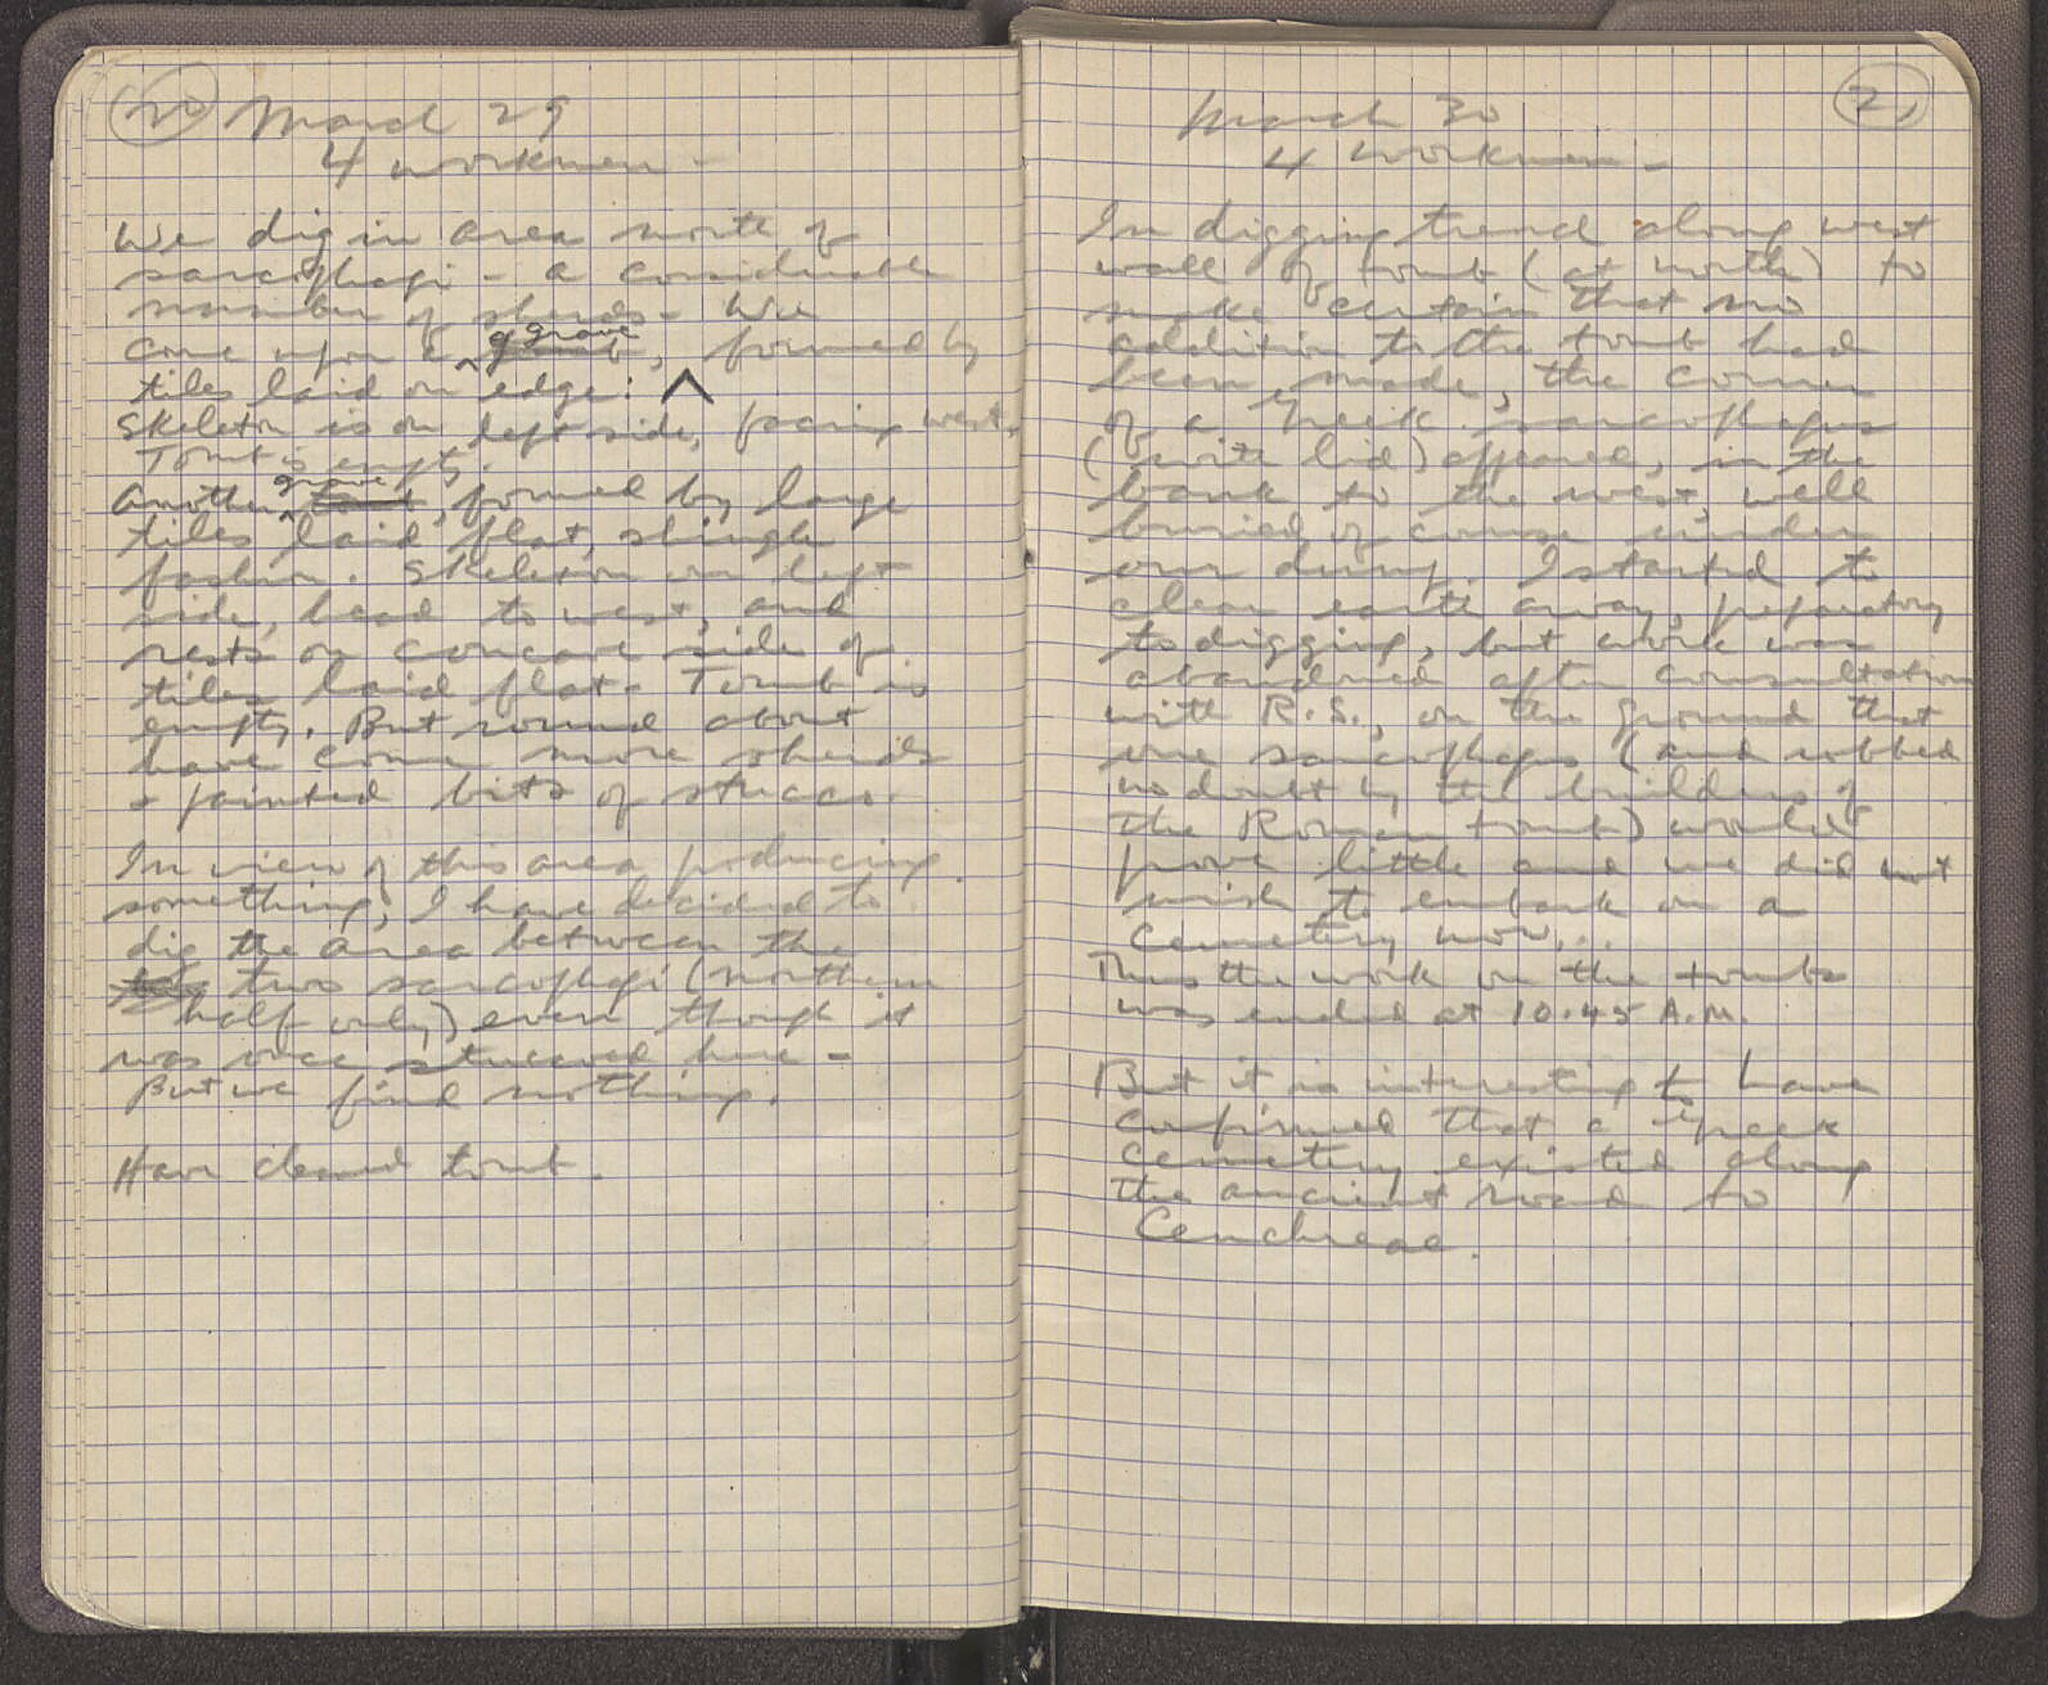 20 March 29
4 workmen -
We dig in area north of
sarcophagi - a considerable
number of sherds - We
come upon a grave, formed by
tiles laid on edge: ^
Skeleton is on left side, facing west.
Tomb is empty.
Another grave, formed by large
tiles laid flat, shingle
fashion. Skeleton on left
side, head to west, and
rests on concave side of
tiles laid flat. Tomb is
empty. But round about
have come more sherds
+ painted bits of stucco.
In view of this area producing
something, I have decided to
dig the area between the
two sarcophagi (northern
half only) even though it
was once stuccoed here -
But we find nothing.
Have cleaned tomb.
March 30 21
4 workmen -
In digging trench along west
wall of tomb (at north) to
make certain that no
addition to the tomb had
been made, the corner
of a Greek sarcophagus
(with lid) appeared, in the
bank to the west, well
buried of course under
our dump. I started to
clear earth away, preparatory
to digging, but work was
abandoned after consultation
with R.S., on the ground that
one sarcophagus (and robbed
no doubt by the builders of
the Roman tomb) would
prove little and we did not
wish to embark on a
cemetery now...
Thus the work on the tombs
was ended at 10.45 A.M.
But it is interesting to have
confirmed that a Greek
cemetery existed along
the ancient road to
Cenchreae.